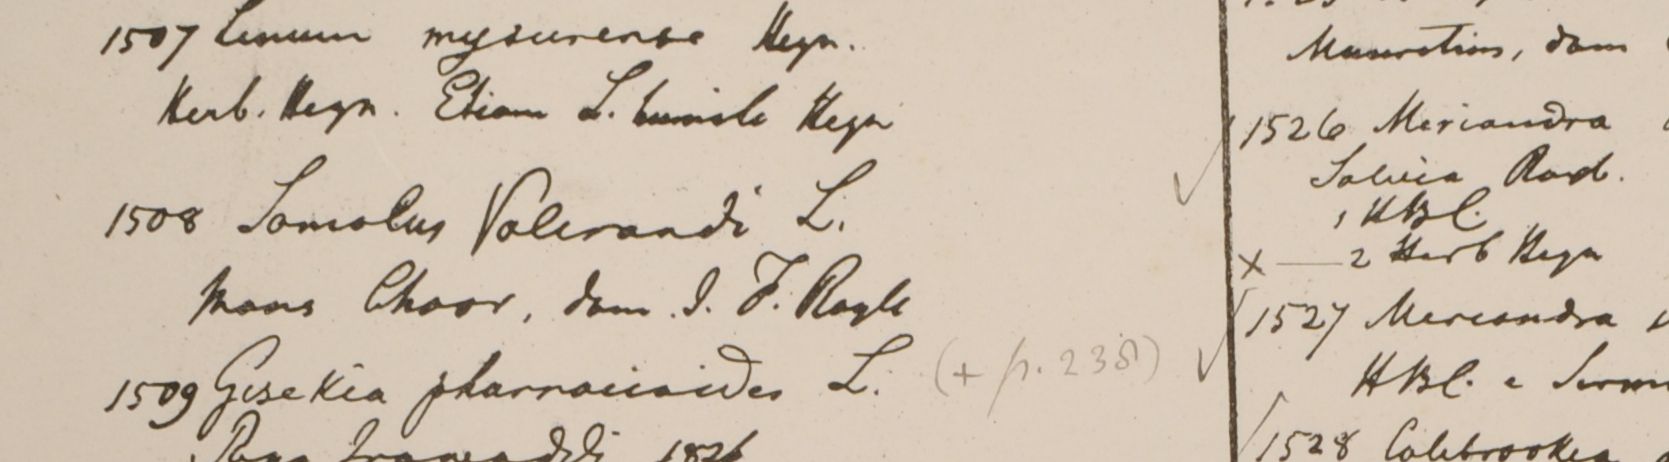 1507 Linum mysurense Heyn.
Herb. Heyn. Etiam L. humile Heyn
1508 Samolus Valerandi L.
Mons Choor, dom. I. F. Royle
1509 Gisekia pharnaceoides L. (+ p. 238)
1826
Mauritius, dom
1526 Meriandra
Salvia Roxb.
1 HBC.
x — 2 Herb Heyn
1527 Meriandra
HBC. e
1528 Colebrookea